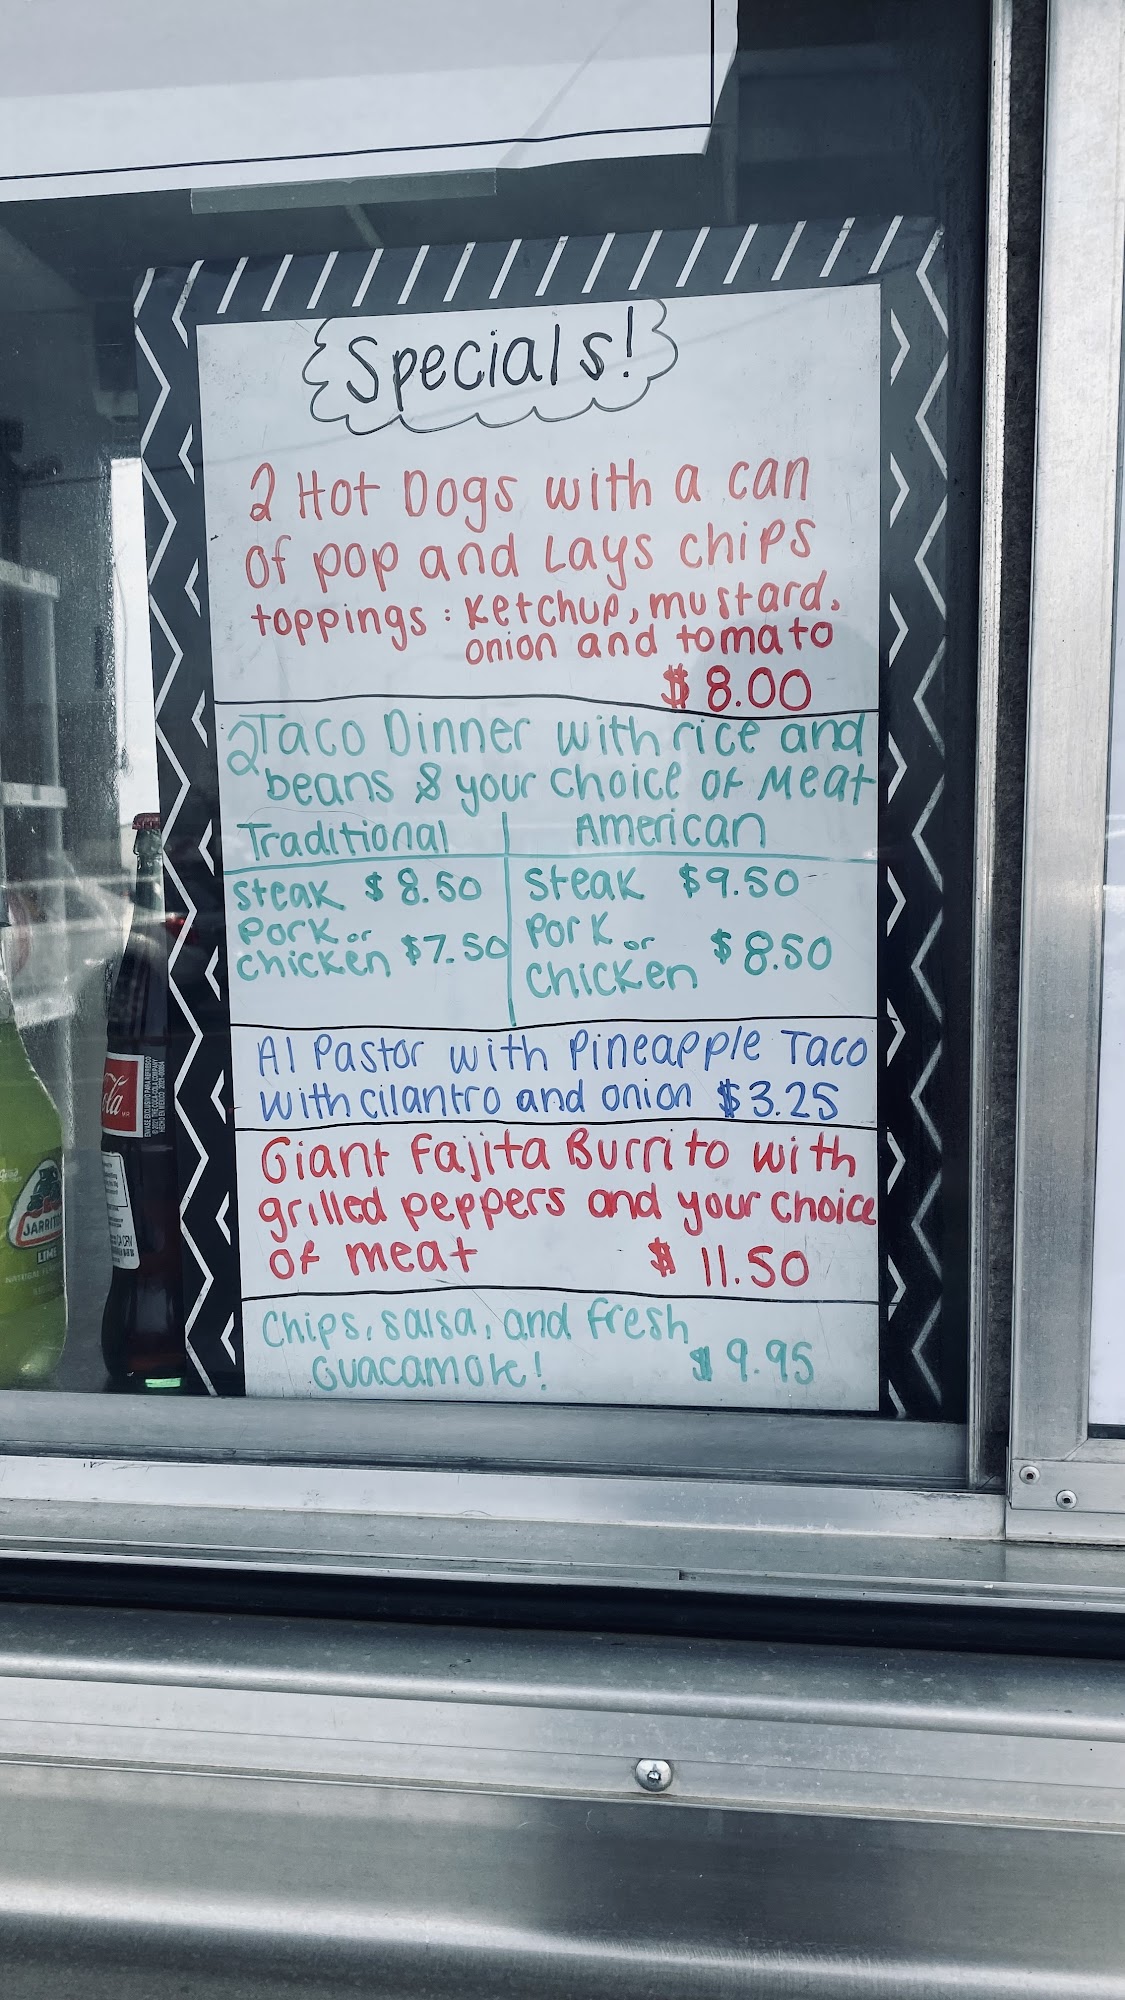 Specials!
2 Hot Dogs with a can
of pop and Lays chips
toppings : Ketchup, mustard,
onion and tomato
$ 8.00
2 Taco Dinner with rice and
beans & your choice of Meat
Traditional
American
Steak $ 8.50
Steak $9.50
Pork or
chicken $7.50
Pork or
chicken $8.50
Al Pastor with Pineapple Taco
with cilantro and onion $3.25
Giant Fajita Burrito with
grilled peppers and your choice
of meat $ 11.50
Chips, salsa, and Fresh
Guacamole! $ 9.95
JARRITOS
LIME